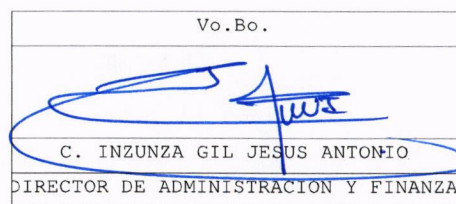 Vo.Bo.
C. INZUNZA GIL JESUS ANTONIO
DIRECTOR DE ADMINISTRACION Y FINANZA